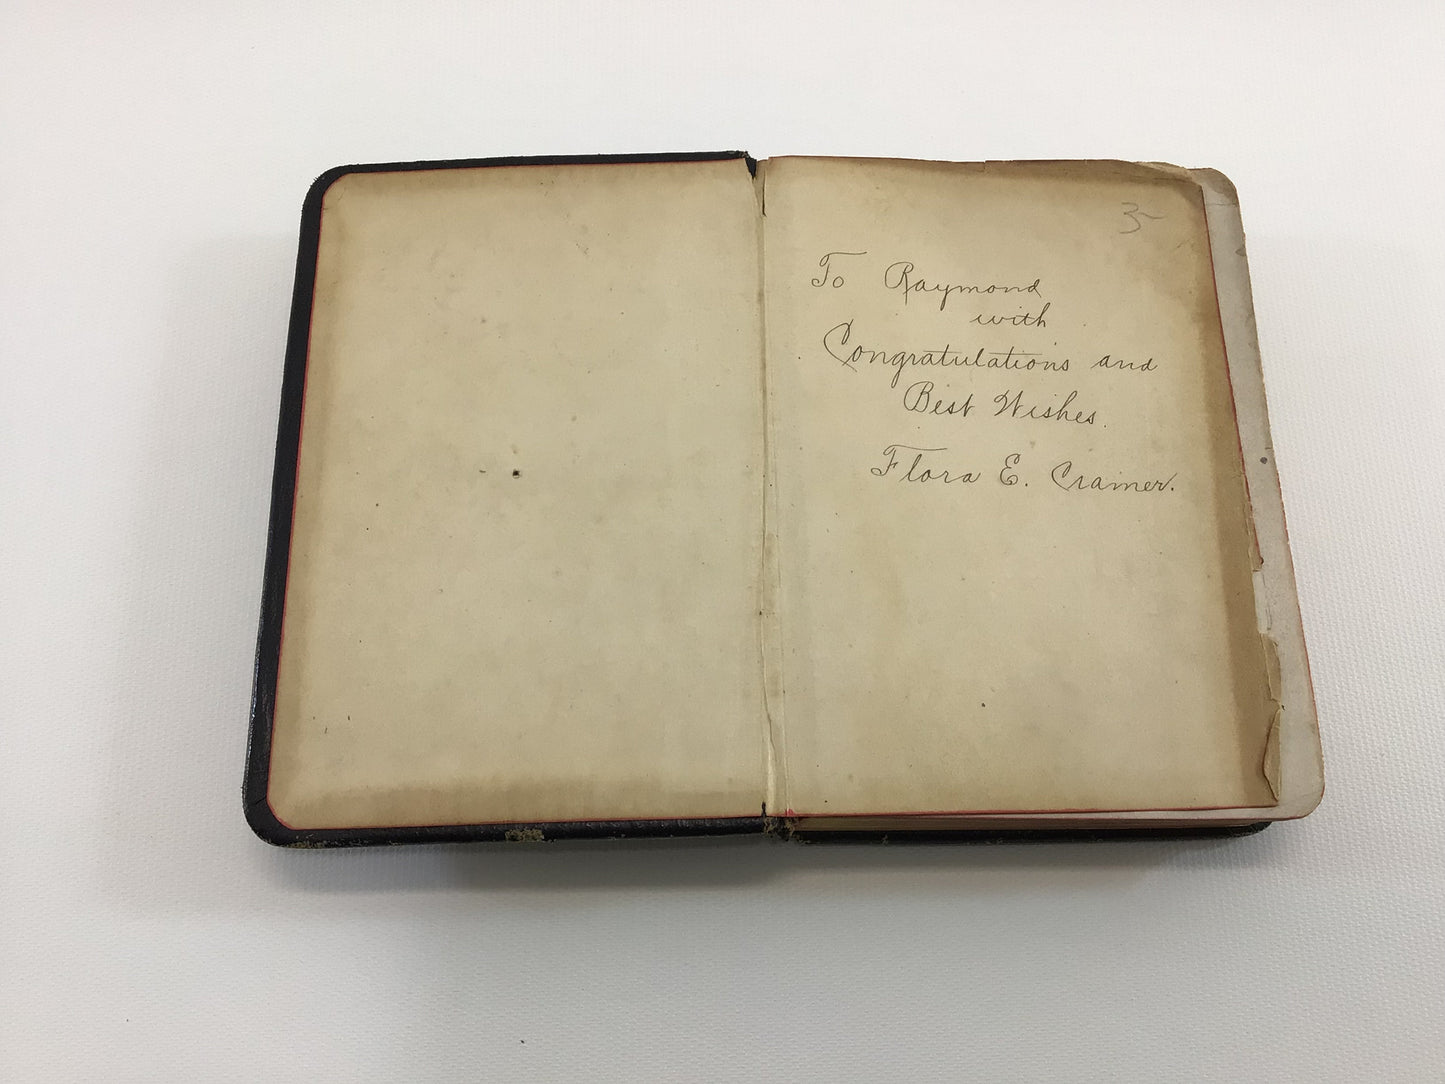 3-
To Raymond
with
Congratulations and
Best Wishes.
Flora E. Cramer.